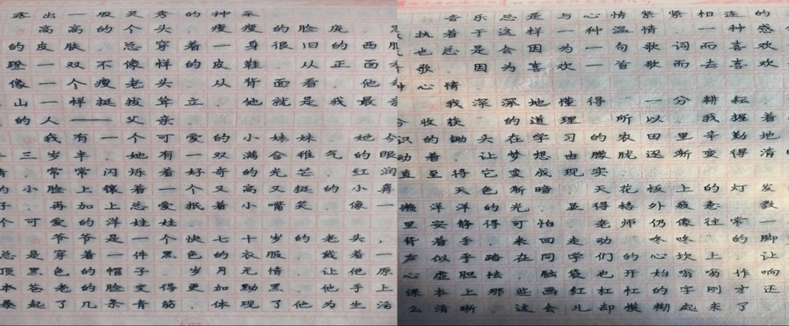 露出一股灵秀的神采
高高的个头 瘦瘦的脸庞
的皮肤 总穿着一身很旧的西服
蹬一双不像样的皮鞋 从正面
像一个瘦老头 从背面看 他却
山一样挺拔耸立 他就是我最亲
的人——父亲
我有一个可爱的小妹妹 她今
三岁半 她有一双满含稚气的眼
常常闪烁着好奇的光芒 红润
小脸上镶着一个又高又挺的小鼻
子 再加上总爱抿着小嘴笑 像一
个可爱的洋娃娃
爷爷是一个快七十岁的老头
总是穿着一件黑色的衣服 戴着一
顶黑色的帽子 岁月无情 让他原
本苍老的脸变得更加黝黑 他手上
暴起了几条青筋 体现了他为生活
音乐总是与心情紧紧相连的
执着于这样一种温情 一种感
也总是会因为一句歌词而喜欢
歌 因为喜欢一首歌而去喜欢
种心情
我深深地懂得 一分耕耘
分收获 的道理 所以 我握着
识的锄头在学习的农田里辛勤地
动着 让梦想由朦胧逐渐变得清
直至将它变成现实
天色渐暗 天花板上的灯发
懒洋洋的光 显得格外疲惫 教
里安静得可怕 老师仍像往常一
背着手 来回走动 咚咚 的脚
声似乎踏在同学们的心坎上 让
心虚胆怯 脑袋也开始嗡嗡作响
课本上那些画红杠杠的字刚才还
么清晰 这会儿却模糊起来了